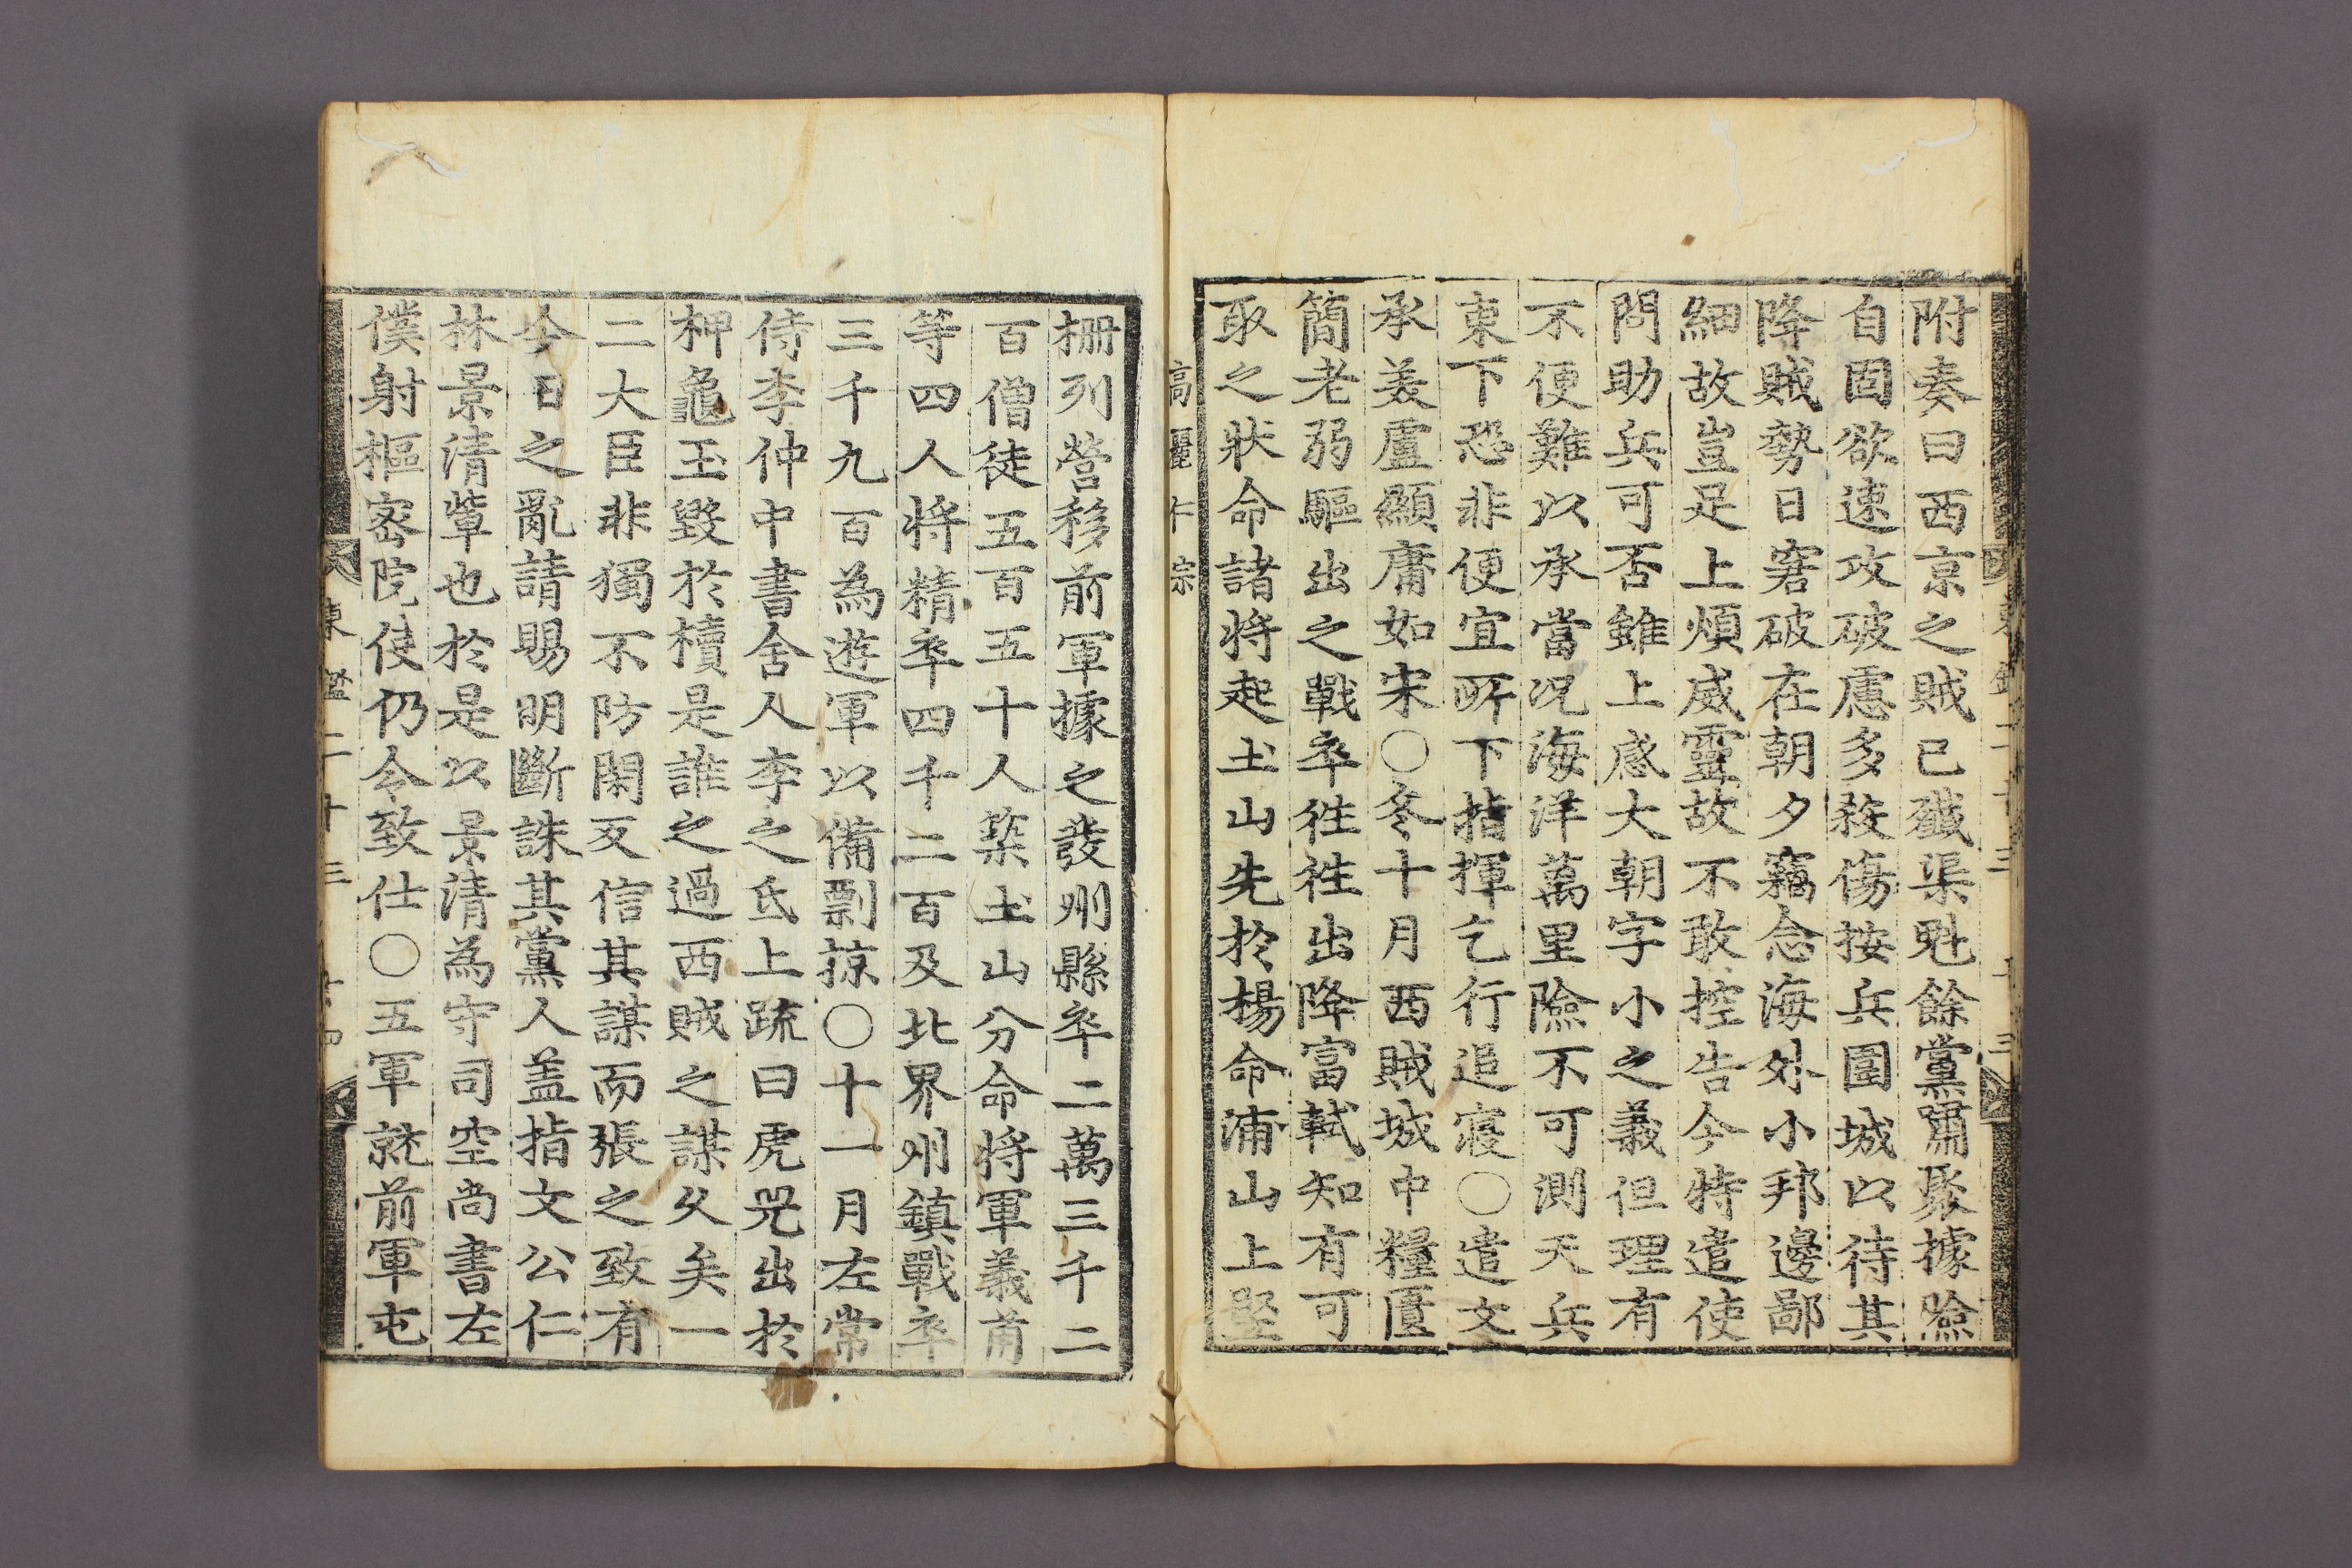 附奏曰西京之賊已殲渠魁餘黨嘯聚據險
自固欲速攻破慮多殺傷按兵圍城以待其
降賊勢日窘破在朝夕竊念海外小邦邊鄙
細故豈足上煩威靈故不敢控告今特遣使
問助兵可否雖上感大朝字小之義但理有
不便難以承當况海洋萬里險不可測天兵
東下恐非便宜所下指揮乞行追寢○遣文
承美盧顯庸如宋○冬十月西賊城中糧匱
簡老弱驅出之戰卒徃徃出降富軾知有可
取之狀命諸將起土山先於楊命浦山上竪
高麗仁宗
柵列營移前軍據之發州縣卒二萬三千二
百僧徒五百五十人築土山分命將軍義甫
等四人將精卒四千二百及北界州鎮戰卒
三千九百為遊軍以備剽掠○十一月左常
侍李仲中書舍人李之氐上疏曰虎兕出於
柙龜玉毀於櫝是誰之過西賊之謀久矣一
二大臣非獨不防閑反信其謀而張之致有
今日之亂請賜明斷誅其黨人盖指文公仁
林景清輩也於是以景清為守司空尚書左
僕射樞密院使仍令致仕○五軍就前軍屯
東鑑二十三